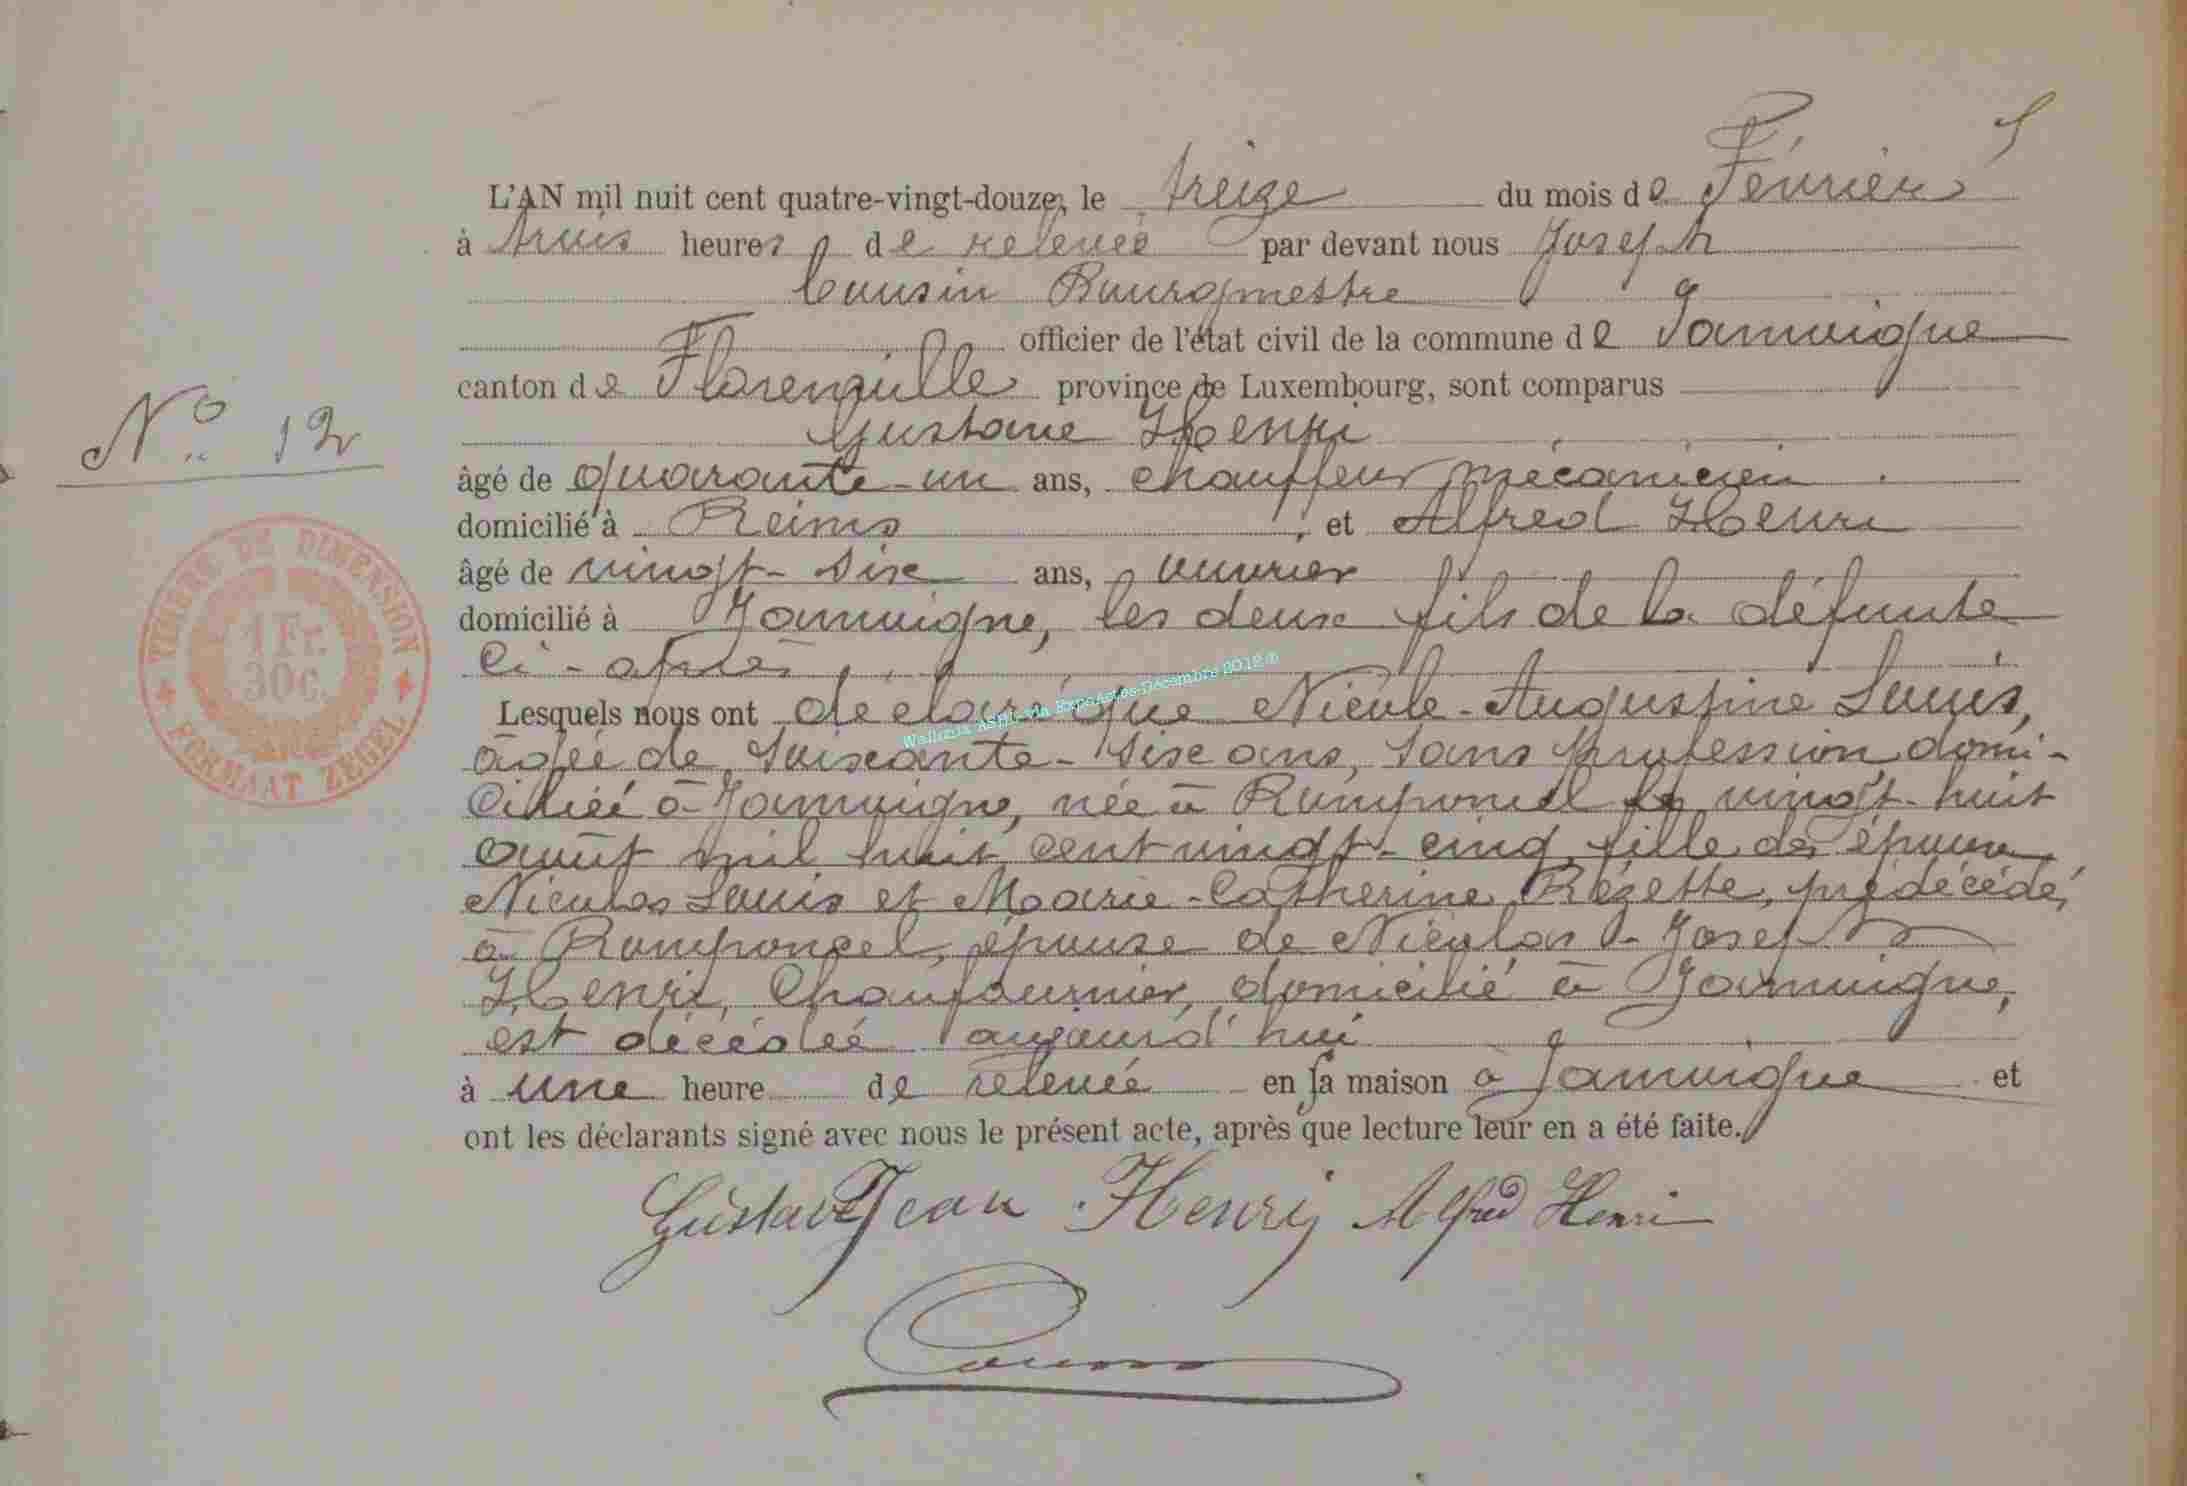 L'AN mil huit cent quatre-vingt-douze, le treize du mois de Février
à trois heures de relevée par devant nous Joseph
Cousin Bourgmestre
officier de l'état civil de la commune de Jamoigne
canton de Florenville province de Luxembourg, sont comparus
Gustave Henri
N° 12
âgé de quarante-un ans, chauffeur mécanicien
domicilié à Reims, et Alfred Henri
âgé de vingt-six ans, ouvrier
domicilié à Jamoigne, les deux fils de la défunte
ci-après
TIMBRE DE DIMENSION
1 Fr.
30c.
FORMAAT ZEGEL
Lesquels nous ont déclaré que Nicole-Augustine Louis,
Wallonia ASBL via ExpoActes-Décembre 2012®
âgée de soixante-six ans, sans profession, domi-
ciliée à Jamoigne, née à Romponcel le vingt-huit
août mil huit cent vingt-cinq, fille des époux
Nicolas Louis et Marie-Catherine Rézette, prédécédés
à Romponcel, épouse de Nicolas-Joseph
Henri, Chaufournier, domicilié à Jamoigne,
est décédée aujourd'hui
à une heure de relevée en sa maison à Jamoigne et
ont les déclarants signé avec nous le présent acte, après que lecture leur en a été faite.
Gustave Jean Henri Alfred Henri
Cousin